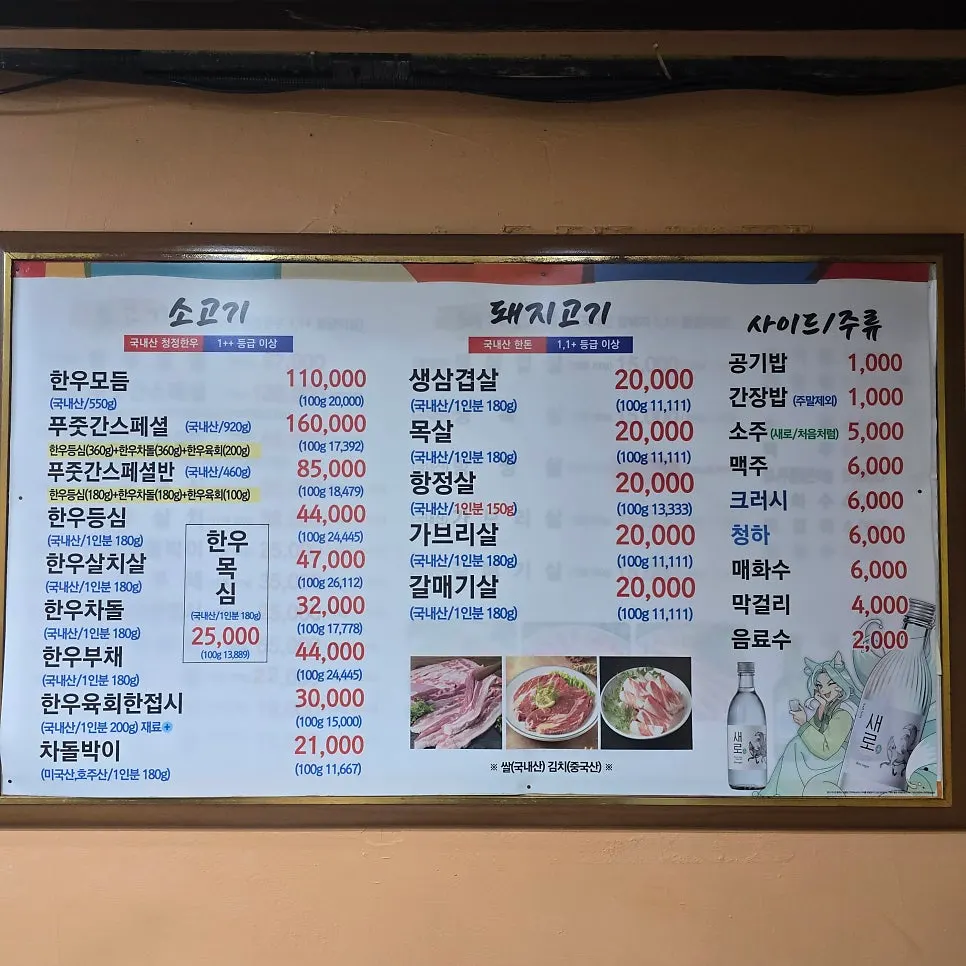 소고기
국내산 청정한우 1++ 등급 이상
한우모듬 110,000
(국내산/550g) (100g 20,000)
푸줏간스페셜 (국내산/920g) 160,000
한우등심(360g)+한우차돌(360g)+한우육회(200g) (100g 17,392)
푸줏간스페셜반 (국내산/460g) 85,000
한우등심(180g)+한우차돌(180g)+한우육회(100g) (100g 18,479)
한우등심 44,000
(국내산/1인분 180g) (100g 24,445)
한우살치살 47,000
(국내산/1인분 180g) (100g 26,112)
한우차돌 32,000
(국내산/1인분 180g) (100g 17,778)
한우부채 44,000
(국내산/1인분 180g) (100g 24,445)
한우육회한접시 30,000
(국내산/1인분 200g) 재료+ (100g 15,000)
차돌박이 21,000
(미국산,호주산/1인분 180g) (100g 11,667)
한우
목
심
(국내산/1인분 180g)
25,000
(100g 13,889)
돼지고기
국내산 한돈 1,1+ 등급 이상
생삼겹살 20,000
(국내산/1인분 180g) (100g 11,111)
목살 20,000
(국내산/1인분 180g) (100g 11,111)
항정살 20,000
(국내산/1인분 150g) (100g 13,333)
가브리살 20,000
(국내산/1인분 180g) (100g 11,111)
갈매기살 20,000
(국내산/1인분 180g) (100g 11,111)
※ 쌀(국내산) 김치(중국산) ※
사이드/주류
공기밥 1,000
간장밥 (주말제외) 1,000
소주 (새로/처음처럼) 5,000
맥주 6,000
크러시 6,000
청하 6,000
매화수 6,000
막걸리 4,000
음료수 2,000
새로
새로